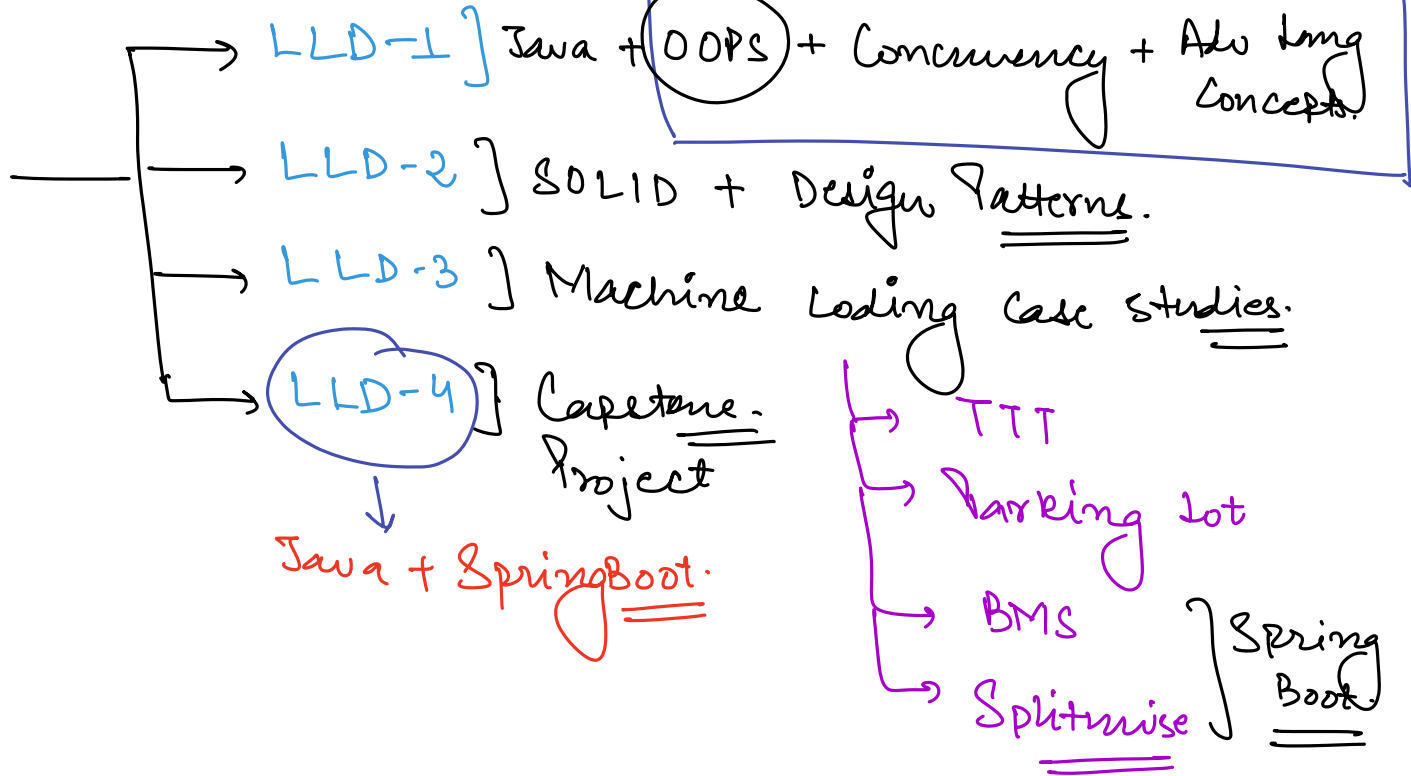 LLD-1] Java + OOPS + Concurrency + Adv Lang
Concepts.
LLD-2] SOLID + Design Patterns.
LLD-3] Machine Coding Case Studies.
LLD-4] Capstone
Project
Java + SpringBoot.
TTT
Parking Lot
BMS
Splitwise
] Spring
Boot.